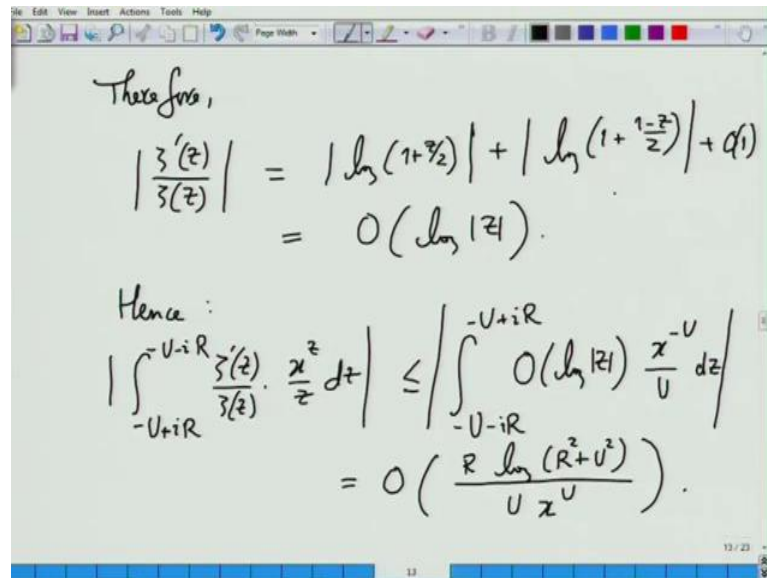 File Edit View Insert Actions Tools Help
Page Width B I
Therefore,
| ζ'(z)/ζ(z) | = | log (1+z/2) | + | log (1 + (1-z)/2) | + O(1)
= O( log |z| ).
Hence :
| ∫_{-U+iR}^{-U-iR} ζ'(z)/ζ(z) · x^z/z dz | ≤ | ∫_{-U-iR}^{-U+iR} O(log |z|) x^{-U}/U dz |
= O( R log (R²+U²) / U x^U ).
13 / 23
13